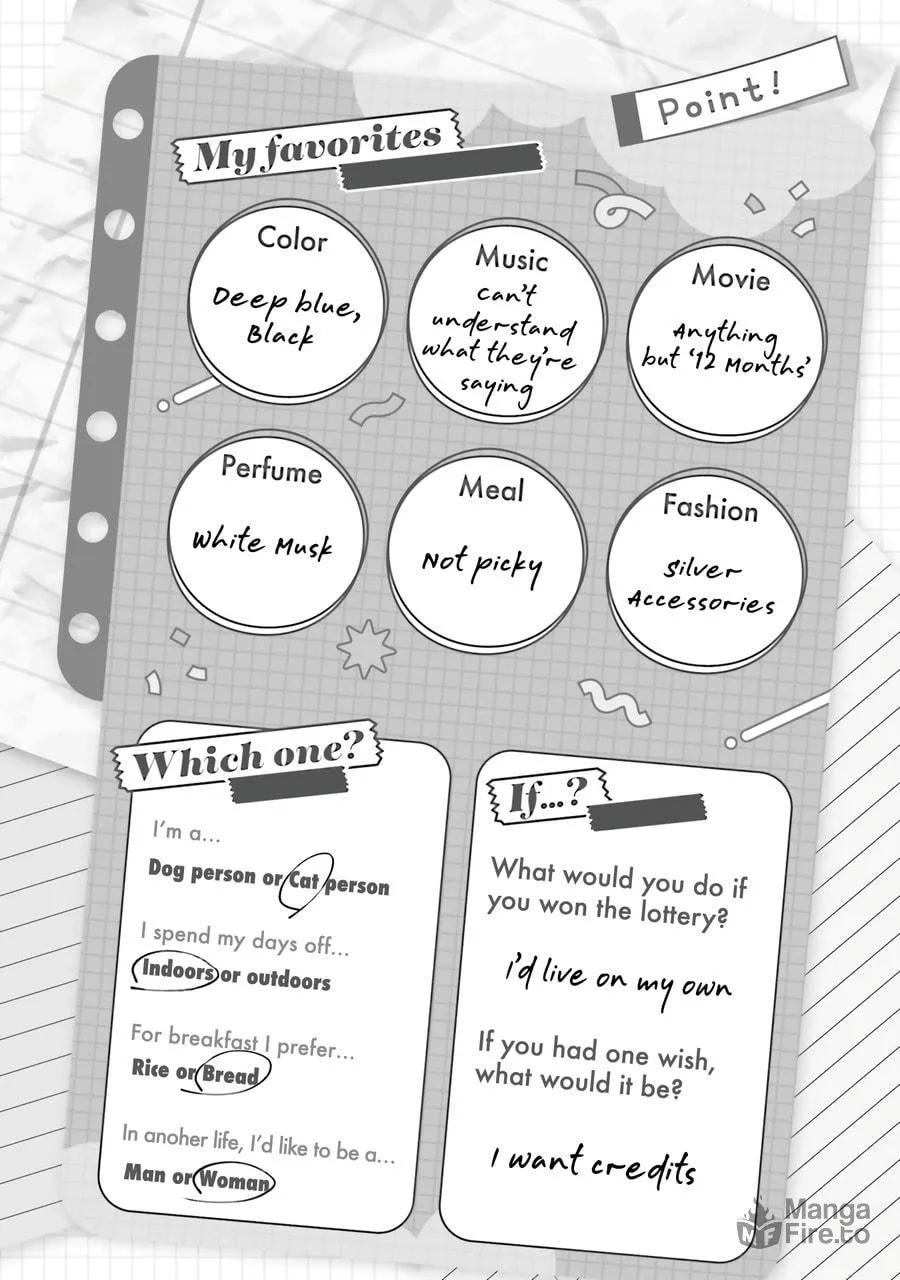 Point!
My favorites
Color
Deep blue,
Black
Music
can't
understand
what they're
saying
Movie
Anything
but '12 Months'
Perfume
White Musk
Meal
Not picky
Fashion
Silver
Accessories
Which one?
I'm a...
Dog person or Cat person
I spend my days off...
Indoors or outdoors
For breakfast I prefer...
Rice or Bread
In anoher life, I'd like to be a...
Man or Woman
If...?
What would you do if
you won the lottery?
i'd live on my own
If you had one wish,
what would it be?
I want credits
Manga
Fire.to
MF